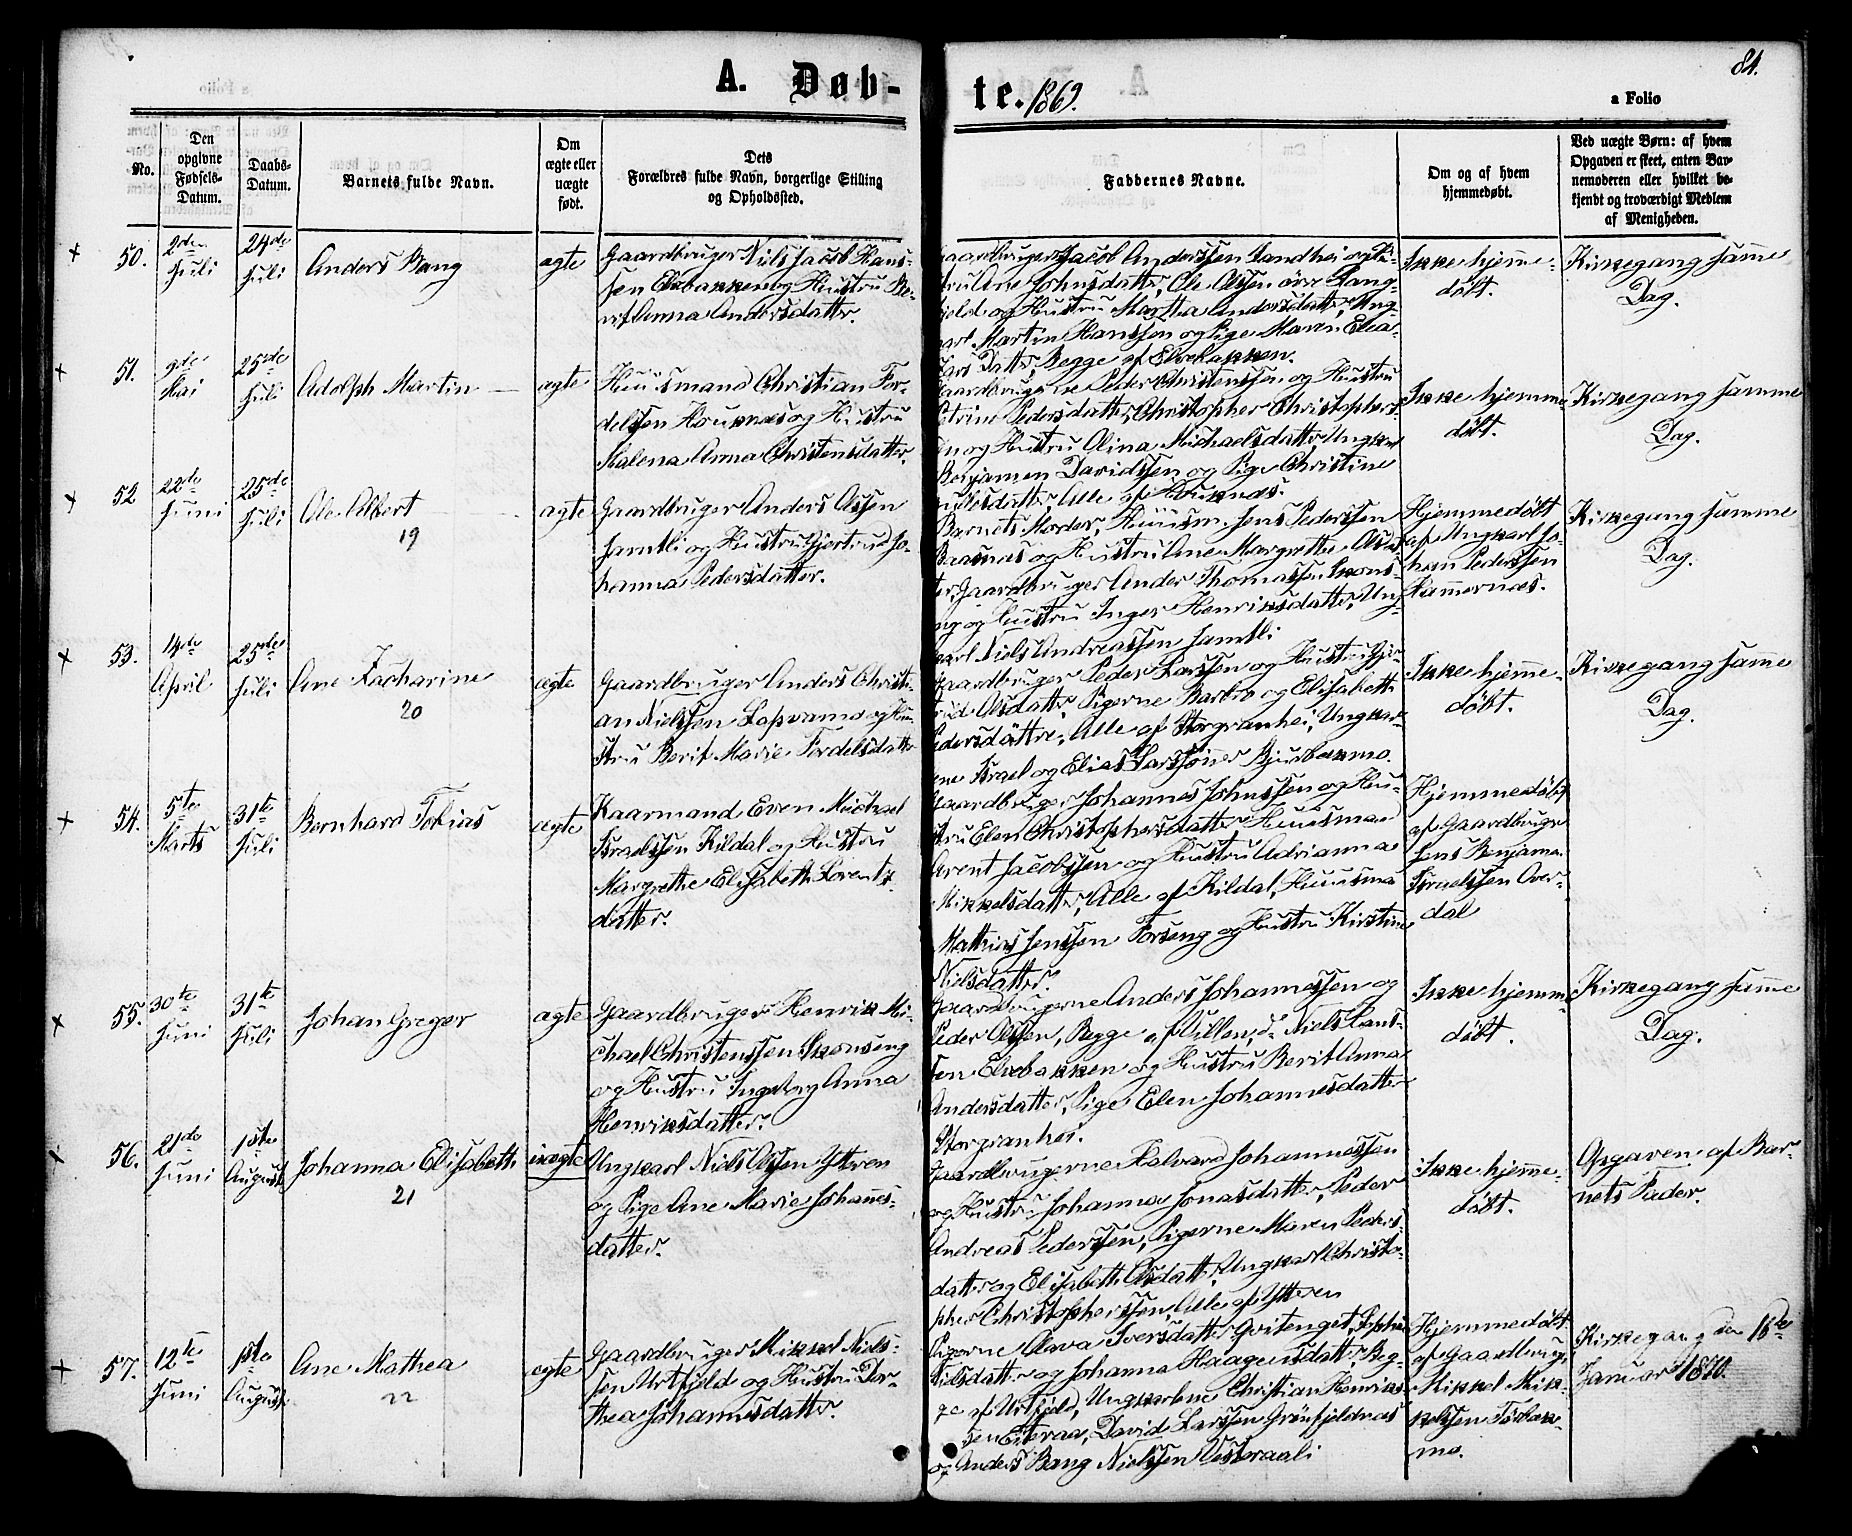 84.
A. Døb-
te. 1869.
a Folio
No.
Den opgivne Fødsels-Datum.
Daabs-Datum.
Barnets fulde Navn.
Om ægte eller uægte født.
Dets Forældres fulde Navn, borgerlige Stilling og Opholdssted.
Faddernes Navne.
Om og af hvem hjemmedøbt.
Ved uægte Børn: af hvem Opgaven er skeet, enten Barnemoderen eller hvilket bekjendt og troværdigt Medlem af Menigheden.
50.
2den Juli
24de Juli
Anders Bang
ægte
Gaardbruger Niels Jacob Hans-
sen Elvbakken og Hustru Be-
rit Anna Andersdatter.
Gaardbruger Jacob Anderssen Sandhei og Hu-
stru Ane Johnsdatter, Ole Olssen övre Lang-
fjeld og Hustru Martha Andersdatter, Ung-
karl Martin Hanssen og Pige Maren Elea-
sars Datter, Begge af Elvebakken.
Ikke hjemme-
döbt.
Kirkegang samme
Dag.
51.
9de Mai
25de Juli
Adolph Martin
ægte
Huusmand Christian For-
delssen Houknæs og Hustru
Malena Anna Christensdatter.
Gaardbrugerne Peder Christenssen og Hustru
Petrine Pedersdatter, Christopher Christophers-
sen og Hustru Olina Michaelsdatter, Ungkarl
Benjamen Davidssen og Pige Christine
Nilsdatter, Alle af Houknæs.
Ikke hjemme-
döbt.
Kirkegang samme
Dag.
52
22de Juni
25de Juli
Ole Albert
19
ægte
Gaardbruger Anders Olssen
Jamtli og Hustru Gjertrud Jo-
hanna Pedersdatter.
Barnets Moder, Huusm. Jens Pederssen
Baasnæs og Hustru Ane Margrethe Olsdat-
ter, Gaardbruger Ander Thomassen Skons-
eng og Hustru Inger Henriksdatter, Ung-
karl Niels Andreassen Jamtli
Hjemmedöbt
af Ungkarl Jo-
han Pederssen
Hammernæs.
Kirkegang samme
Dag.
53.
14de April
25de Juli
Ane Zacharine
20
ægte
Gaardbruger Anders Christi-
an Nielssen Lapvamo og Hu-
stru Berit Marie Fordelsdatter
Gaardbruger Peder Larssen og Hustru Gjer-
trud Olsdatter, Pigerne Barbro og Elisabeth
Pedersdöttre, Alle af Storgranhei, Ungkar-
lene Israel og Elias Larssöner Bjurbækmo.
Ikke hjemme-
döbt.
Kirkegang samme
Dag.
54.
5te Marts
31te Juli
Bernhard Tobias
ægte
Kaarmand Even Michael
Israelssen Kildal og Hustru
Margrethe Elisabeth Lorentz-
datter.
Gaardbruger Johannes Johnssen og Hu-
stru Elen Christophersdatter, Huusmand
Arent Jacobssen og Hustru Adrianna
Mikkelsdatter, Alle af Kildal, Huusma
Mathias Jenssen Forseng og Hustru Kirstine
Nielsdatter.
Hjemmedöbt
af Gaardbruger
Jens Benjamin
Israelssen Over-
dal
55.
30te Juni
31te Juli
Johan Greger
ægte
Gaardbruger Henrik Mi-
chael Christenssen Skonseng
og Hustru Ingeborg Anna
Henriksdatter.
Gaardbrugerne Anders Johannessen og
Peder Olssen, Begge af Villen, do Niels Hans-
sen Elvebakken og Hustru Berit Anna
Andersdatter, Pige Elen Johannesdatter
Storgranhei.
Ikke hjemme
döbt.
Kirkegang samme
Dag.
56.
21de Juni
1ste August
Johanna Elisabeth
21
uægte
Ungkarl Niels Olssen Ytteren
og Pige Ane Marie Johannes-
datter.
Gaardbrugerne Halvard Johannessen
og Hustru Johanna Jonasdatter, Peder
Andreas Pederssen, Pigerne Maren Peders-
datter og Elisabeth Olsdatter, Ungkarl Christo-
pher Christopherssen, Alle af Ytteren
Ikke hjemme-
döbt.
Opgaven af Bar-
nets Fader.
57.
12te Juni
1ste August
Ane Mathea
22
ægte
Gaardbruger Mikkel Niels-
sen Urtfjeld og Hustru Dor-
thea Johannesdatter.
Pigerne Olava Iversdatter Qvitenget, Sophie
Nilsdatter og Johanna Haagensdatter, Beg-
ge af Urtfjeld, Ungkarlene Christian Henriks-
sen Eiteraa, David Larssen Grönfjeldnæs
og Anders Bang Nielssen Vesteraali
Hjemmedöbt
af Gaardbruger
Mikkel Mik-
kelssen Törbæk-
mo.
Kirkegang den 16de
Januar 1870.